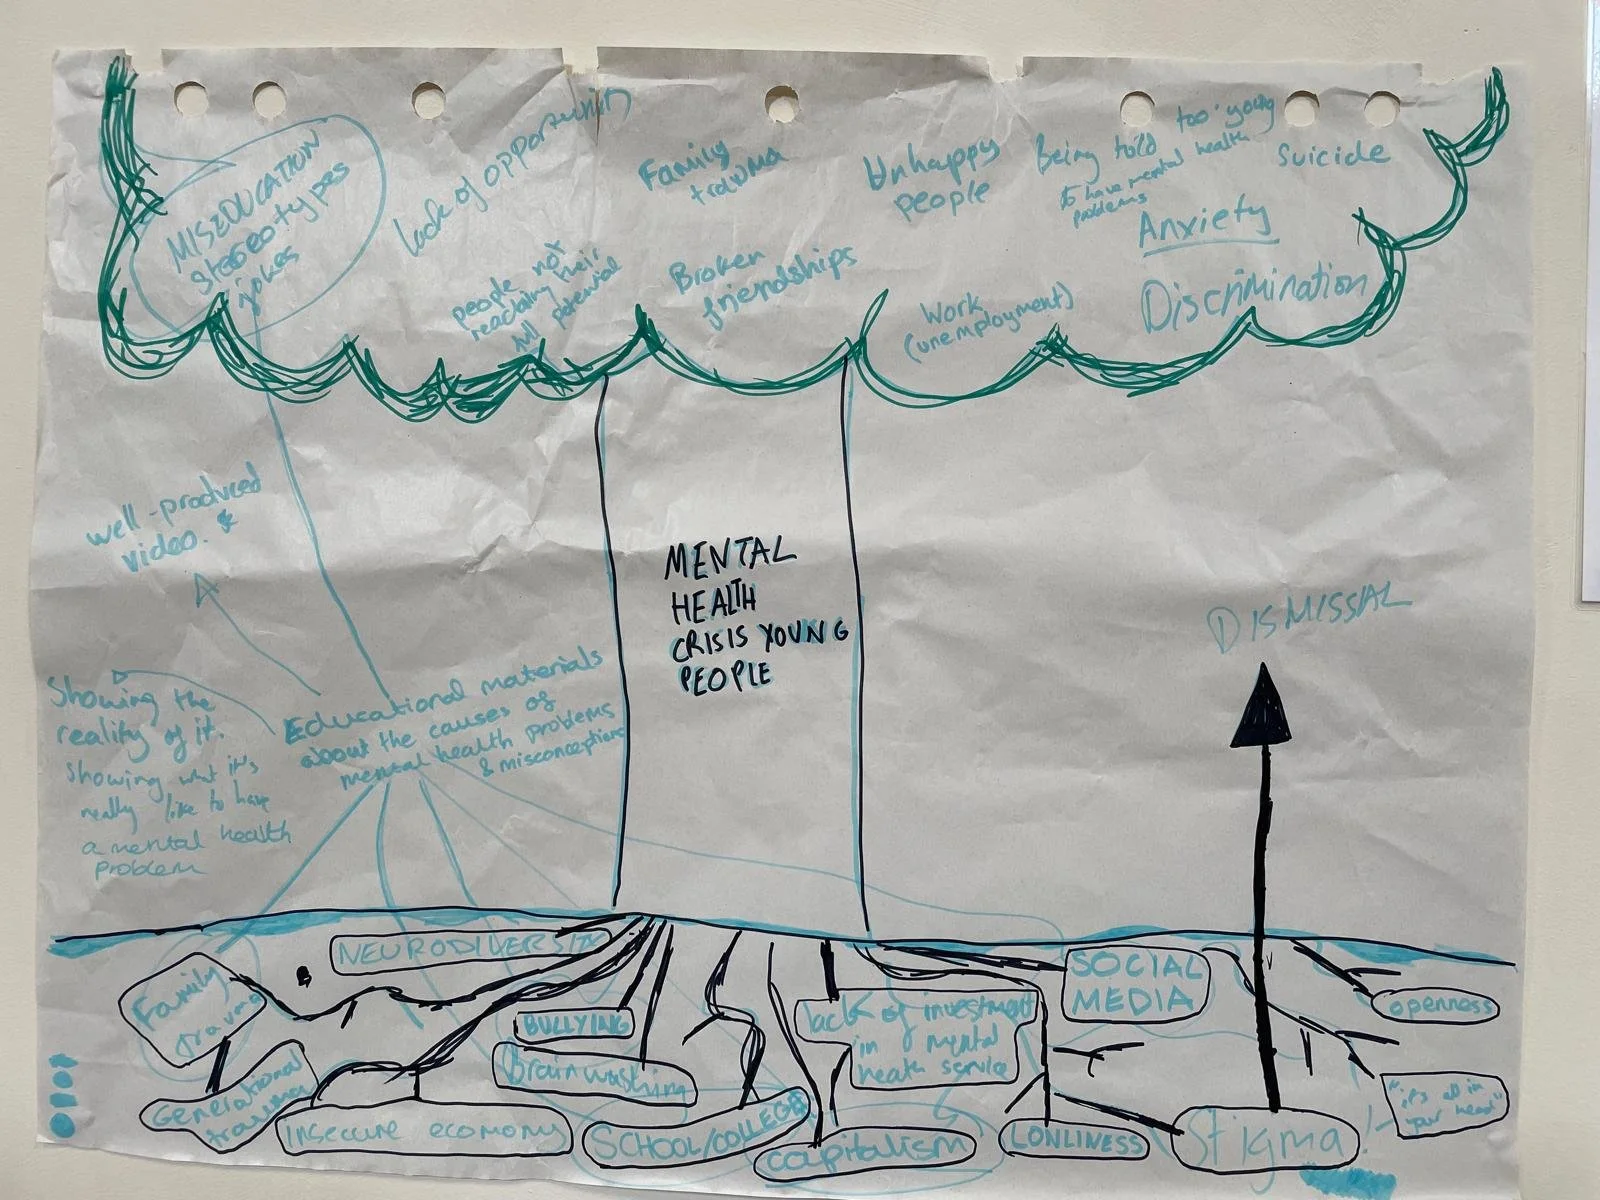 MISEDUCATION
stereotypes
jokes
lack of opportunity
people not
reaching their
full potential
Family
trauma
Broken
friendships
Unhappy
people
Work
(unemployment)
Being told too young
to have mental health
problems
Suicide
Anxiety
Discrimination
well-produced
video.
Showing the
reality of it.
showing what it's
really like to have
a mental health
problem
Educational materials
about the causes of
mental health problems
& misconceptions
MENTAL
HEALTH
CRISIS YOUNG
PEOPLE
DISMISSAL
NEURODIVERSITY
Family
trauma
Generational
trauma
Insecure economy
BULLYING
Brainwashing
SCHOOL/COLLEGE
capitalism
lack of investment
in mental
health service
SOCIAL
MEDIA
LONLINESS
Stigma
openness
"it's all in
your head"